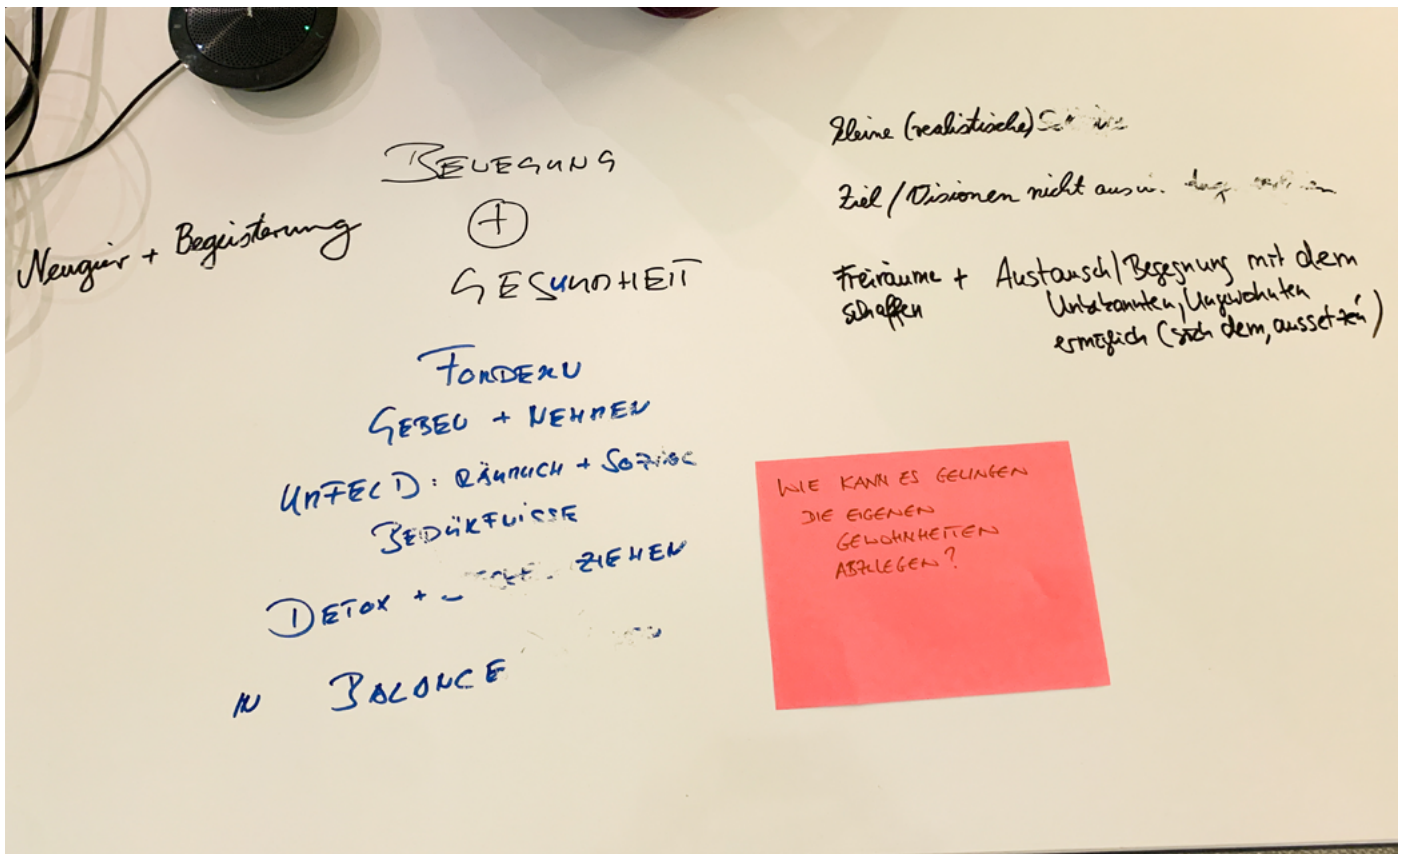 BEWEGUNG
+
GESUNDHEIT
Neugier + Begeisterung
FORDERN
GEBEN + NEHMEN
UMFELD: RÄUMLICH + SOZIAL
BEDÜRFNISSE
DETOX + ZIEHEN
IN BALANCE
kleine (realistische)
Ziel / Visionen nicht aus
Freiräume + Austausch / Begegnung mit dem
schaffen Unbekannten, Ungewohnten
ermöglich (sich dem, aussetzen)
WIE KANN ES GELINGEN
DIE EIGENEN
GEWOHNHEITEN
ABZULEGEN?